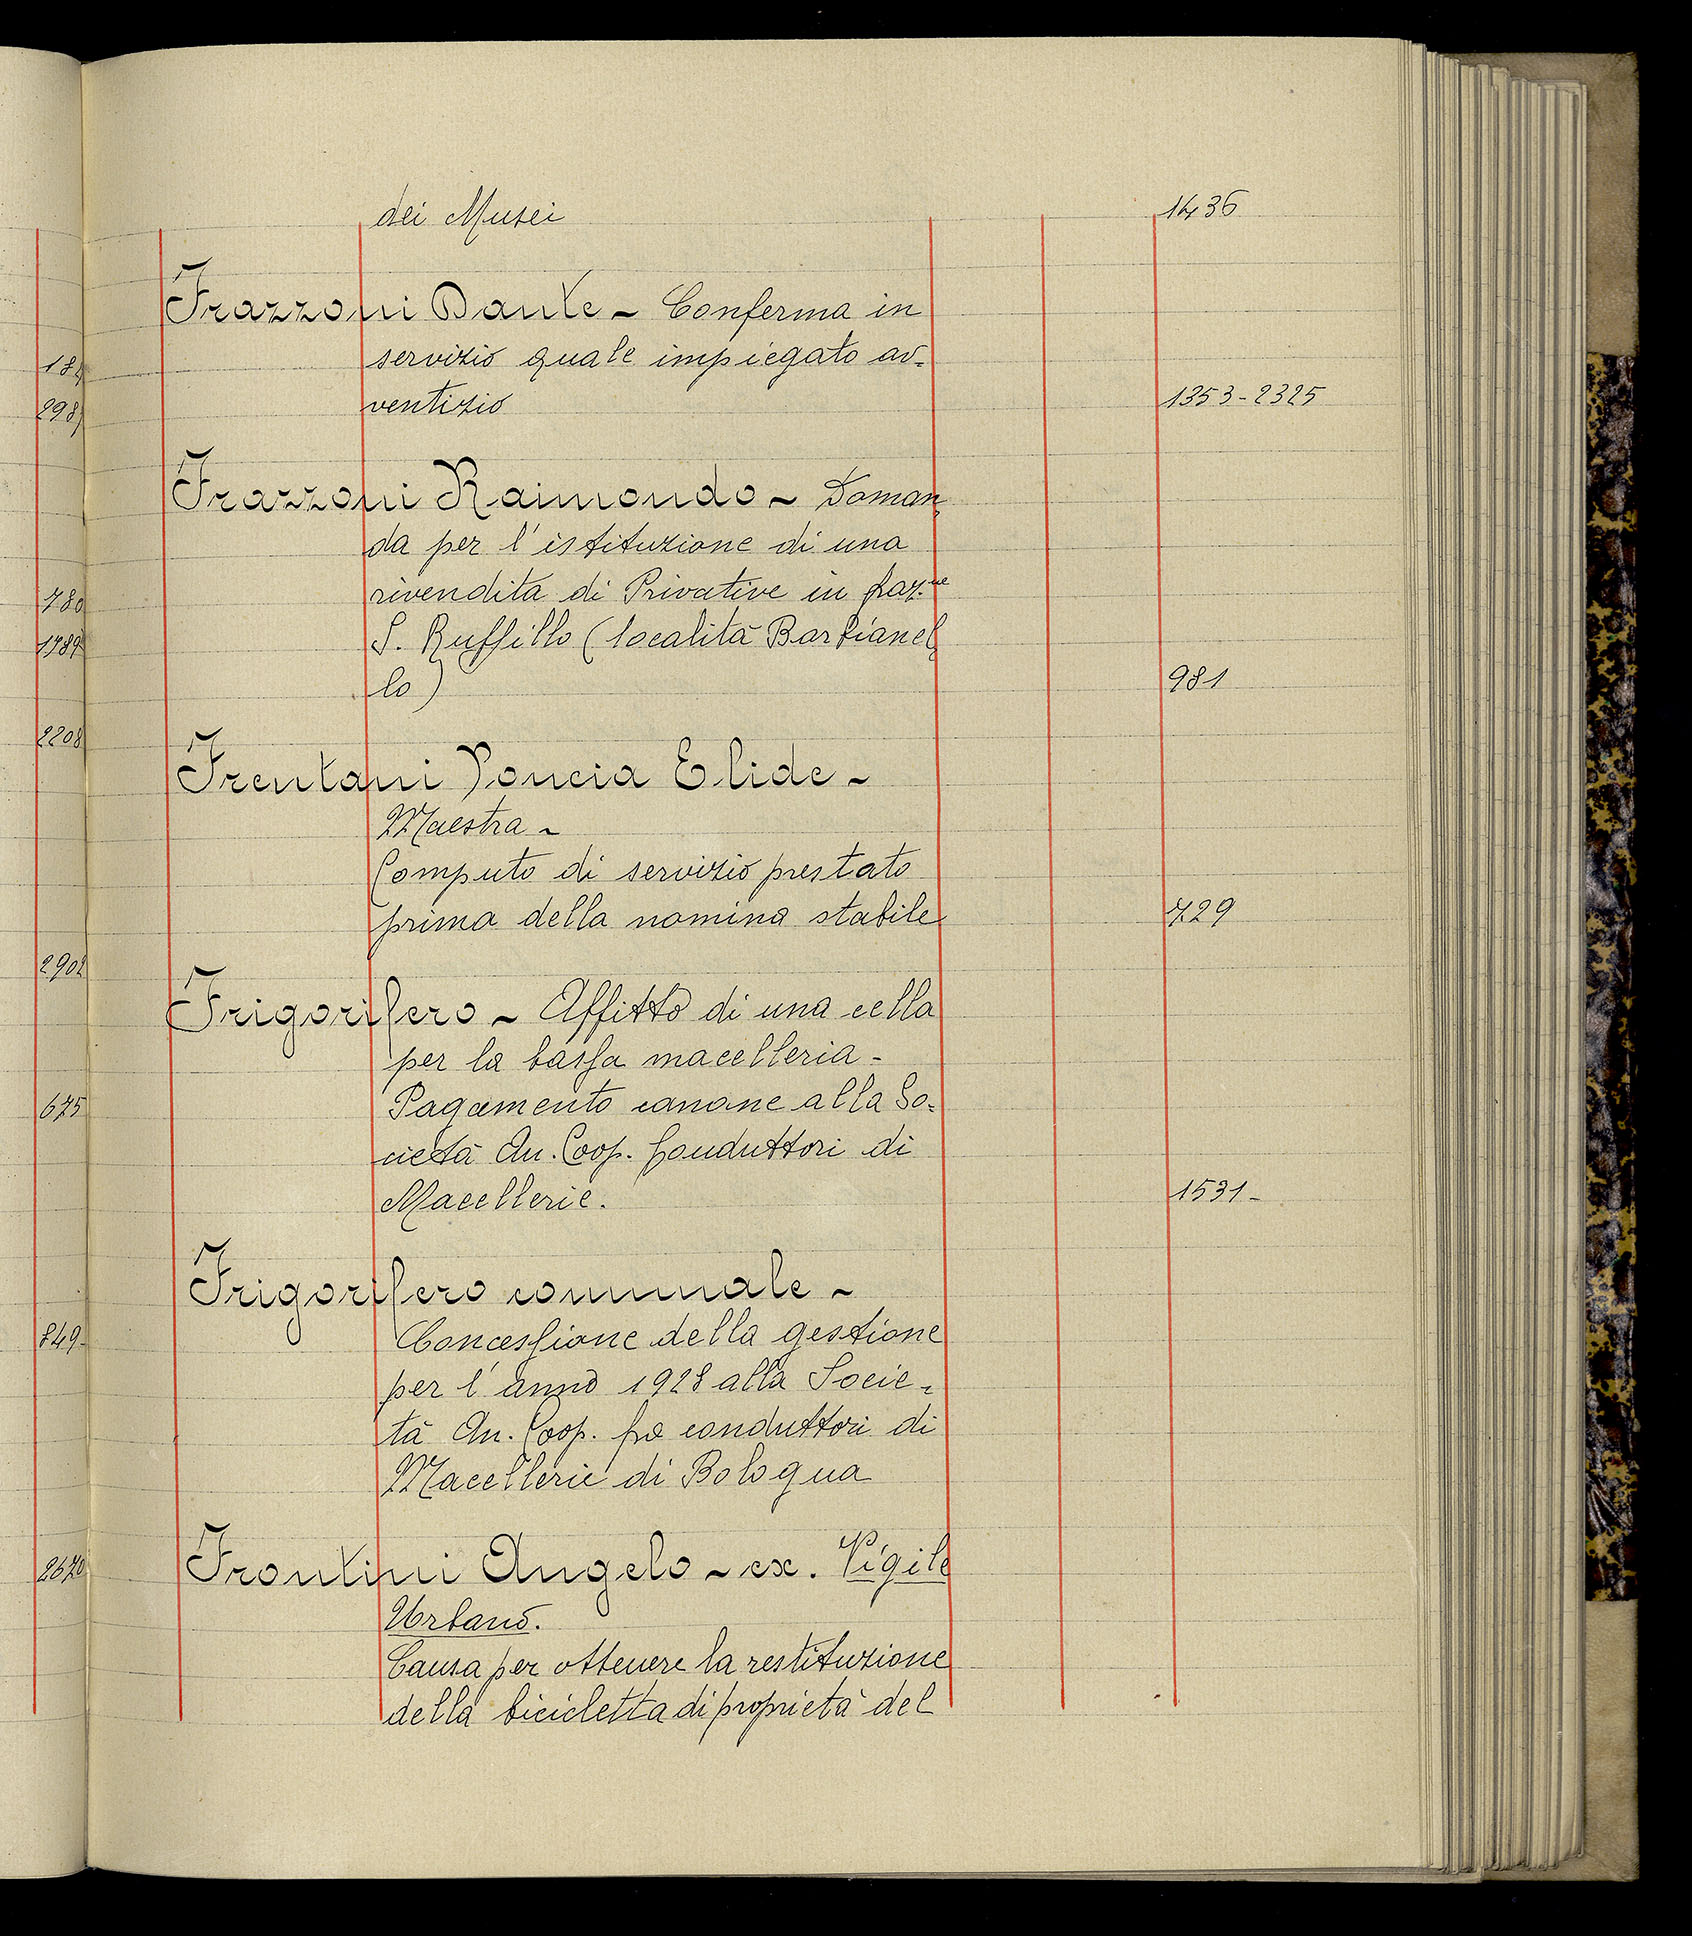 184
298
780
1789
2208
2902
675
849-
2670
dei Musei 1436
Frazzoni Dante - Conferma in
servizio quale impiegato av=
ventizio 1353-2325
Frazzoni Raimondo - Doman=
da per l'istituzione di una
rivendita di Privative in fraz.ne
S. Ruffillo (località Barbianel=
lo) 981
Frentani Poncia Elide -
Maestra -
Computo di servizio prestato
prima della nomina stabile 729
Frigorifero - Affitto di una cella
per la bassa macelleria -
Pagamento canone alla So=
cietà An. Coop. Conduttori di
Macellerie. 1531-
Frigorifero comunale -
Concessione della gestione
per l'anno 1928 alla Socie=
tà An. Coop. fra conduttori di
Macellerie di Bologna
Frontini Angelo - ex. Vigile
Urbano.
Causa per ottenere la restituzione
della bicicletta di proprietà del